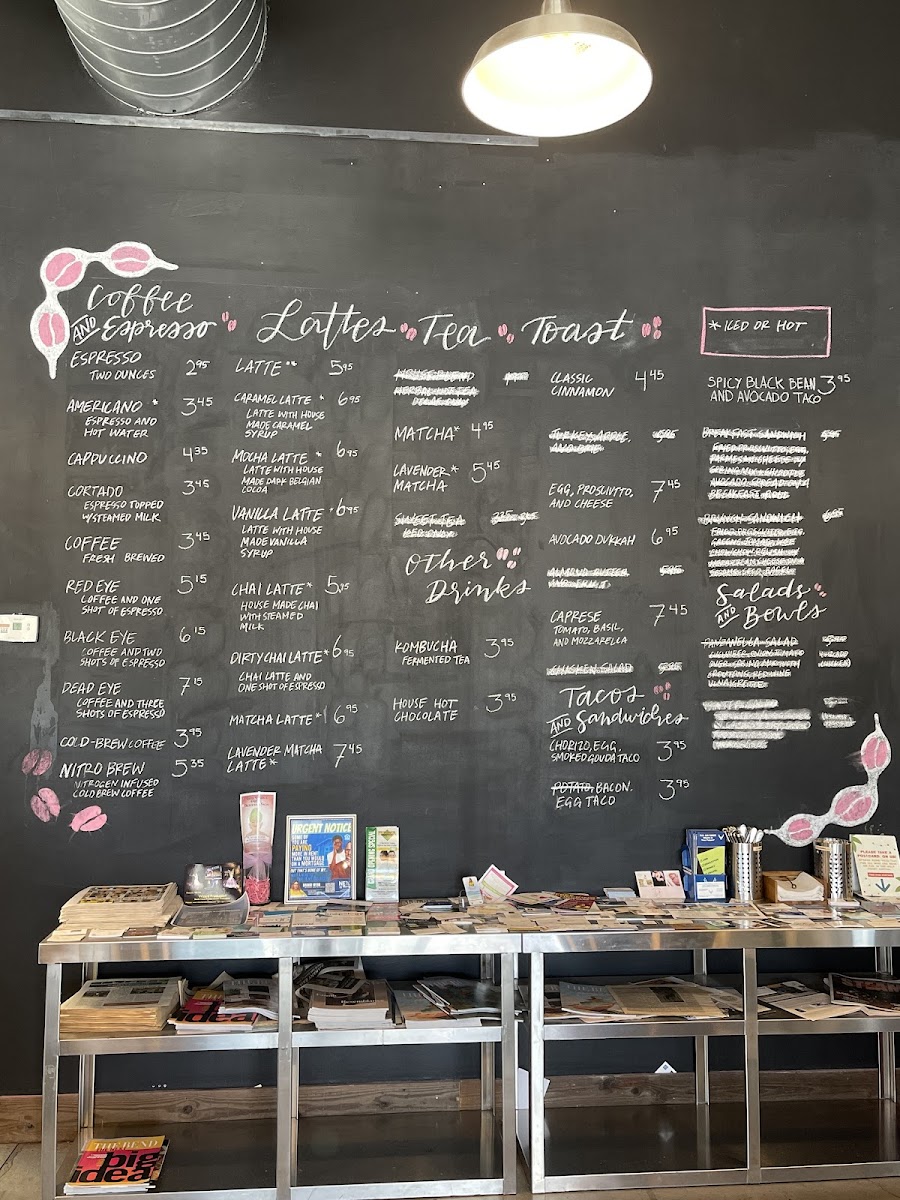 Coffee
AND Espresso
ESPRESSO 2.95
TWO OUNCES
AMERICANO * 3.45
ESPRESSO AND
HOT WATER
CAPPUCCINO 4.35
CORTADO 3.45
ESPRESSO TOPPED
W/STEAMED MILK
COFFEE 3.45
FRESH BREWED
RED EYE 5.15
COFFEE AND ONE
SHOT OF ESPRESSO
BLACK EYE 6.15
COFFEE AND TWO
SHOTS OF ESPRESSO
DEAD EYE 7.15
COFFEE AND THREE
SHOTS OF ESPRESSO
COLD-BREW COFFEE 3.95
NITRO BREW 5.35
NITROGEN INFUSED
COLD BREW COFFEE
Lattes
LATTE ** 5.95
CARAMEL LATTE * 6.95
LATTE WITH HOUSE
MADE CARAMEL
SYRUP
MOCHA LATTE * 6.95
LATTE WITH HOUSE
MADE DARK BELGIAN
COCOA
VANILLA LATTE * 6.95
LATTE WITH HOUSE
MADE VANILLA
SYRUP
CHAI LATTE * 5.95
HOUSE MADE CHAI
WITH STEAMED
MILK
DIRTY CHAI LATTE * 6.95
CHAI LATTE AND
ONE SHOT OF ESPRESSO
MATCHA LATTE * 6.95
LAVENDER MATCHA 7.45
LATTE *
Tea
HOUSE BLEND
HERBAL HOT TEA
MATCHA * 4.95
LAVENDER * 5.45
MATCHA
SWEET TEA
ICED ONLY
Other
Drinks
KOMBUCHA 3.95
FERMENTED TEA
HOUSE HOT 3.95
CHOCOLATE
Toast
CLASSIC 4.45
CINNAMON
TURKEY, APPLE,
AND BRIE
EGG, PROSCIUTTO, 7.45
AND CHEESE
AVOCADO DUKKAH 6.95
ALMOND BUTTER
AND FRUIT
CAPRESE 7.45
TOMATO, BASIL,
AND MOZZARELLA
CHICKEN SALAD
Tacos
AND Sandwiches
CHORIZO, EGG, 3.95
SMOKED GOUDA TACO
POTATO, BACON, 3.95
EGG TACO
* ICED OR HOT
SPICY BLACK BEAN 3.95
AND AVOCADO TACO
BREAKFAST SANDWICH
FRIED PROSCIUTTO, EGG,
PARMESAN CHEESE
AVOCADO SPREAD
BREAKFAST
BRUNCH SANDWICH
Salads
AND Bowls
PANZANELLA SALAD
URGENT NOTICE
PAYING
MORE IN RENT
THAN YOU WOULD
ON A MORTGAGE
THE BEND
big
idea